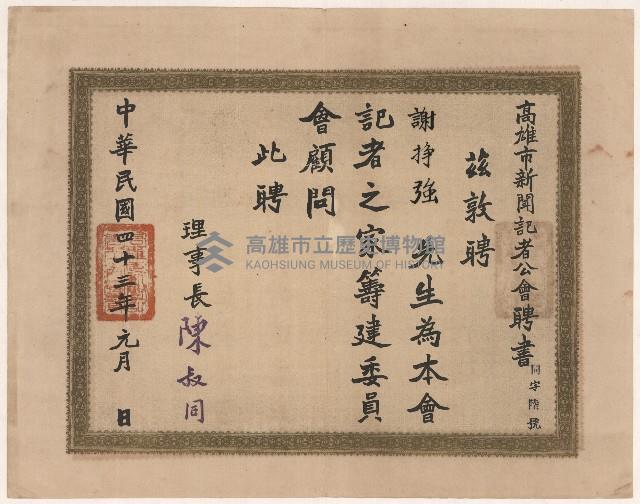 高雄市新聞記者公會聘書
同字陸號
茲敦聘
謝掙強 先生為本會
記者之家籌建委員
會顧問
此聘
理事長 陳叔同
中華民國四十三年元月 日
高雄市立歷史博物館
KAOHSIUNG MUSEUM OF HISTORY